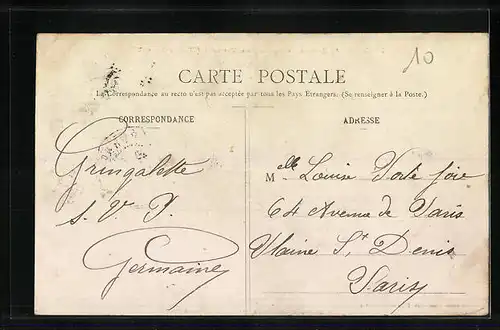 10
CARTE POSTALE
La Correspondance au recto n'est pas acceptée par tous les Pays Étrangers. (Se renseigner à la Poste.)
CORRESPONDANCE
ADRESSE
Gringalette
s. V. P.
Germaine
Melle Louise
64 Avenue de Paris
Plaine St Denis
Paris